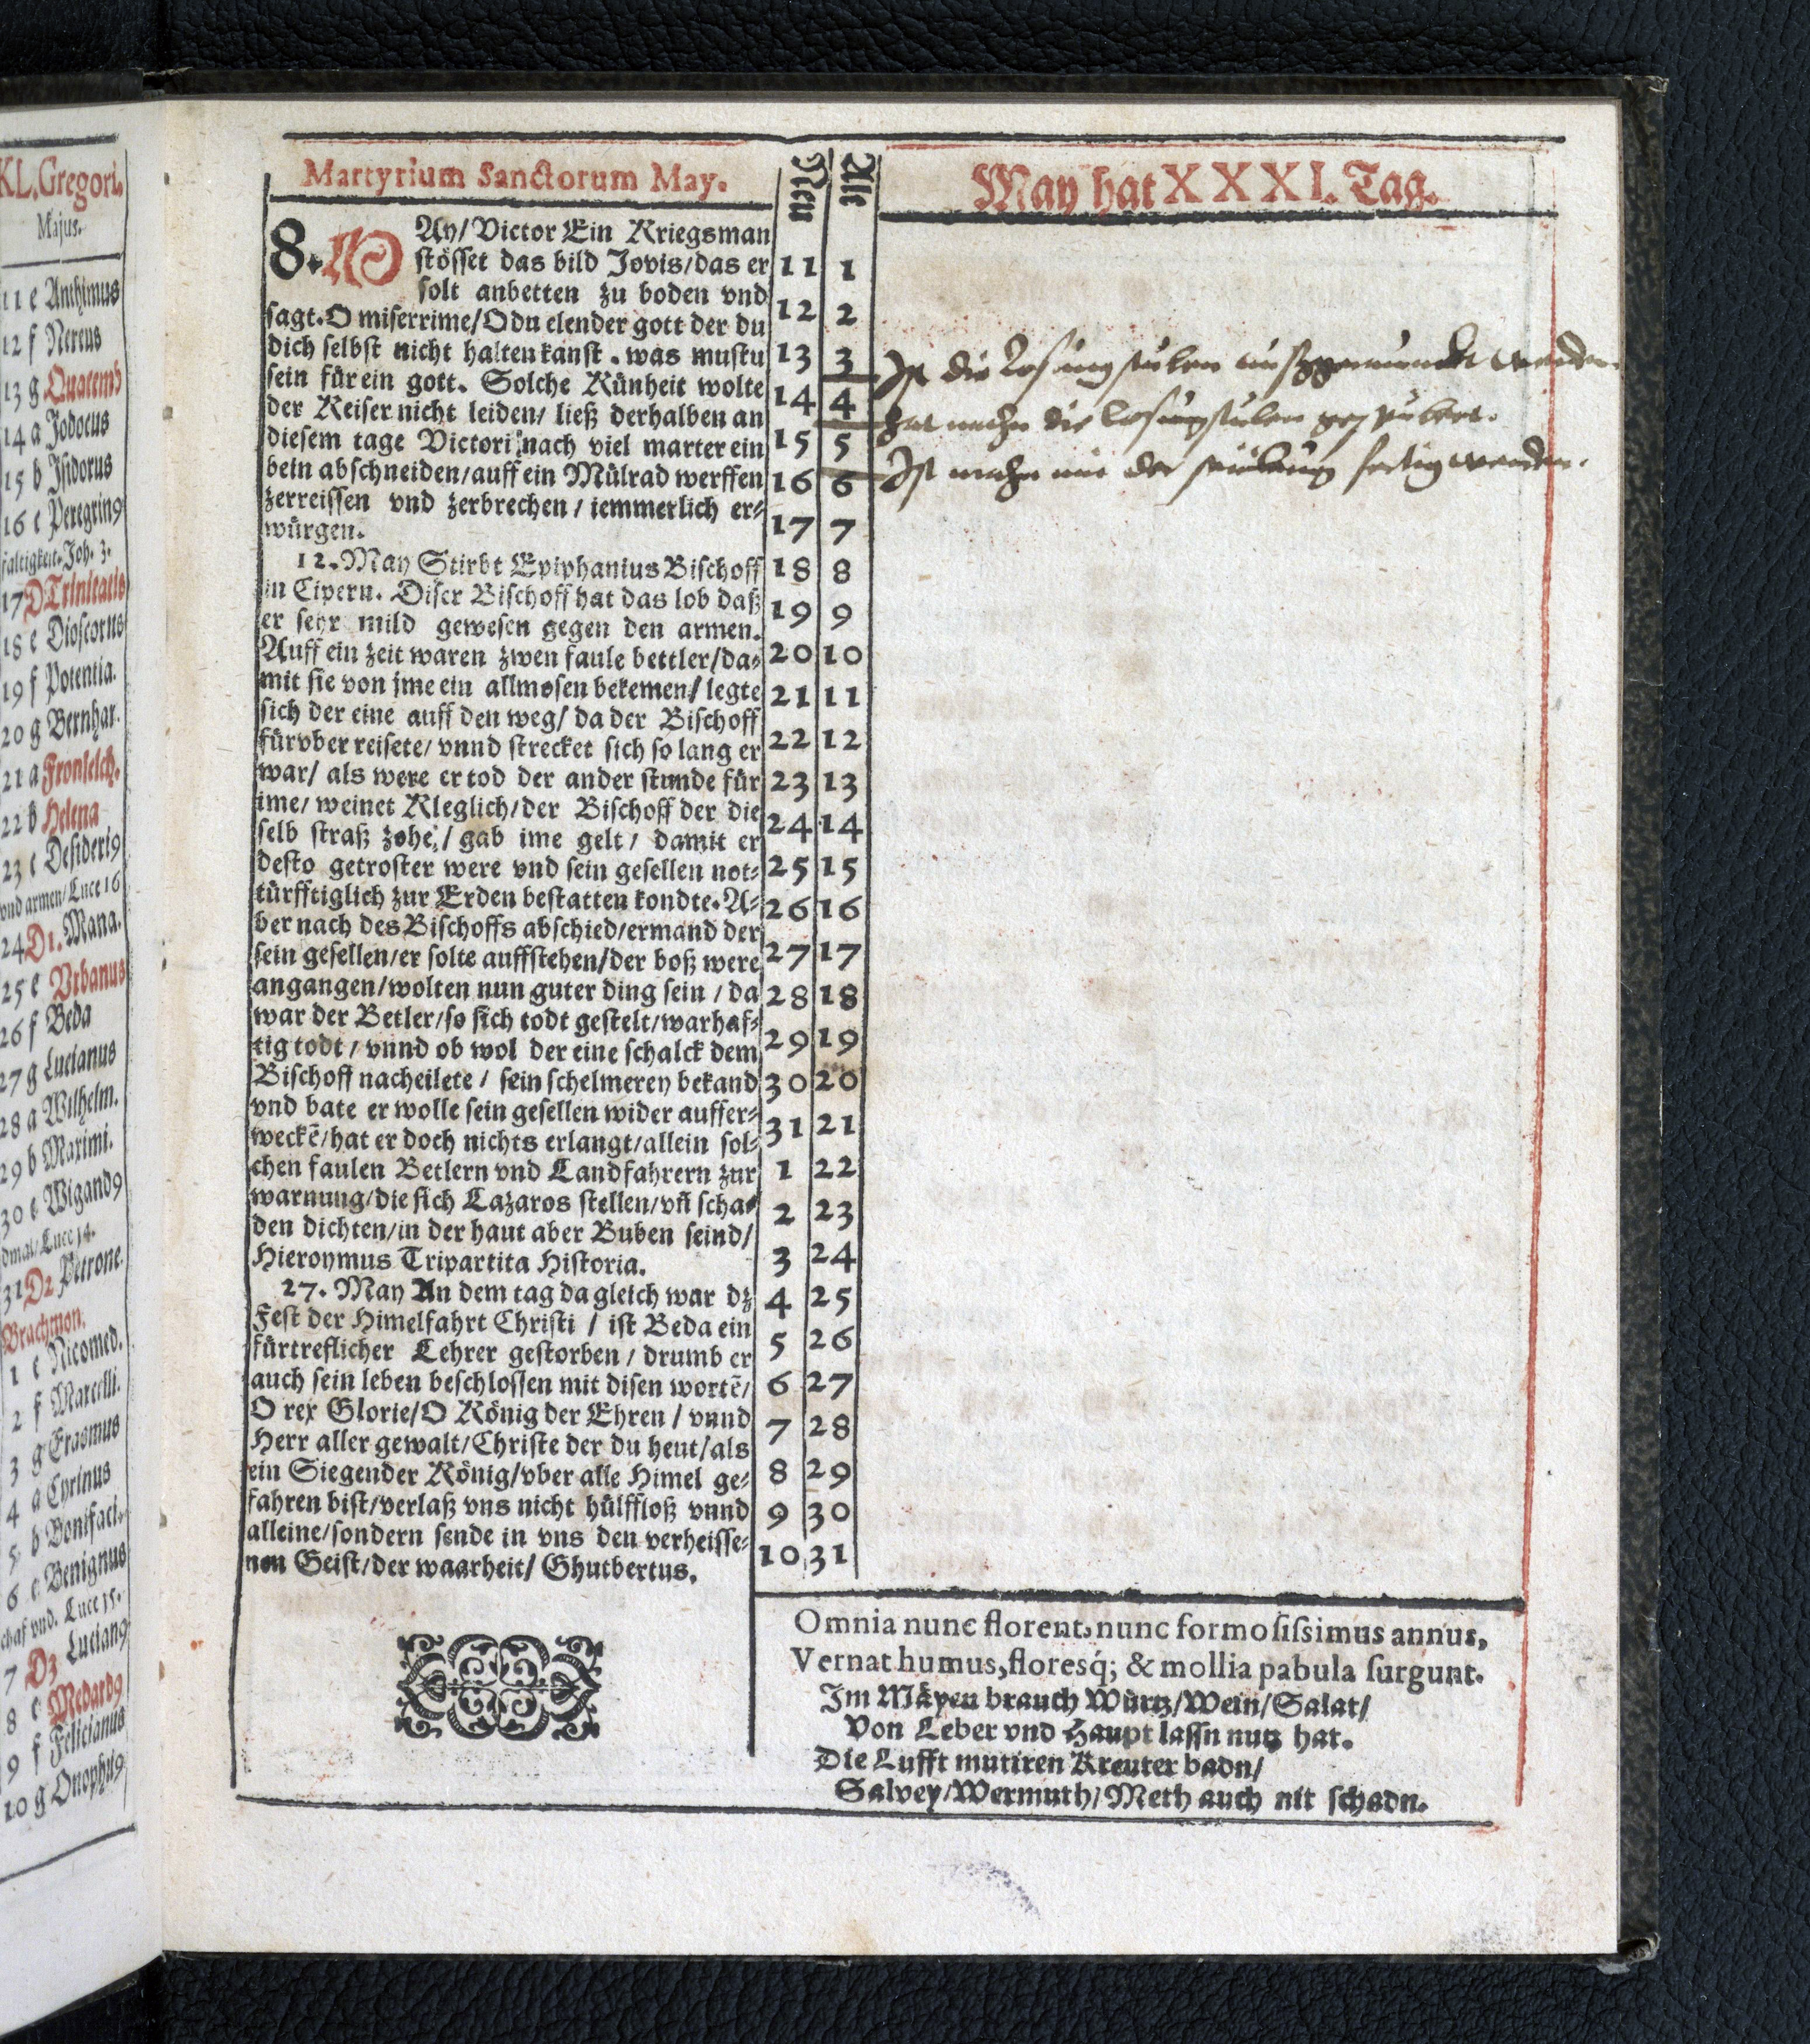 KL. Gregori.
Majus.
11 e Anthimus
12 f Nereus
13 g Quatemb
14 a Jodocus
15 b Isidorus
16 c Peregring
faltigkeit. Joh. 3.
17 D Trinitatis
18 e Dioscorus
19 f Potentia.
20 g Bernhar.
21 a Fronleich.
22 b Helena
23 c Desiderig
vnd armen/Luce 16
24 D1. Mana.
25 e Vrbanus
26 f Beda
27 g Lucianus
28 a Wilhelm.
29 b Maximi.
30 c Wigandg
dmal/Luce 14.
31 D2 Petrone.
Brachmon.
1 e Nicomed.
2 f Marcelli.
3 g Erasmus
4 a Cyrinus
5 b Bonifaci.
6 c Benignus
chaf vnd. Luce 15.
7 D3 Luciang
8 e Medardg
9 f Felicianus
10 g Onophrig
Martyrium Sanctorum May.
8. MAy/ Victor Ein Kriegsman
stösset das bild Jovis/das er
solt anbetten zu boden vnd
sagt. O miserrime/O du elender gott der du
dich selbst nicht halten kanst. was mustu
sein für ein gott. Solche Künheit wolte
der Keiser nicht leiden/ ließ derhalben an
diesem tage Victori nach viel marter ein
bein abschneiden/auff ein Mülrad werffen
zerreissen vnd zerbrechen/ iemmerlich er-
würgen.
12. May Stirbt Epiphanius Bischoff
in Cipern. Diser Bischoff hat das lob daß
er sehr mild gewesen gegen den armen.
Auff ein zeit waren zwen faule bettler/da-
mit sie von jme ein allmosen bekemen/ legte
sich der eine auff den weg/ da der Bischoff
fürvber reisete/ vnnd strecket sich so lang er
war/ als were er tod der ander stunde für
ime/ weinet Kleglich/der Bischoff der die
selb straß zohe/ gab ime gelt/ damit er
desto getroster were vnd sein gesellen not-
türfftiglich zur Erden bestatten kondte. A-
ber nach des Bischoffs abschied/ermand der
sein gesellen/er solte auffstehen/der boß were
angangen/wolten nun guter ding sein/ da
war der Betler/so sich todt gestelt/warhaf-
tig todt/ vnnd ob wol der eine schalck dem
Bischoff nacheilete/ sein schelmerey bekand
vnd bate er wolle sein gesellen wider auffer-
weckẽ/hat er doch nichts erlangt/allein sol-
chen faulen Betlern vnd Landfahrern zur
warnung/die sich Lazaros stellen/vñ scha-
den dichten/in der haut aber Buben seind/
Hieronymus Tripartita Historia.
27. May An dem tag da gleich war dz
Fest der Himelfahrt Christi/ ist Beda ein
fürtreflicher Lehrer gestorben/ drumb er
auch sein leben beschlossen mit disen wortẽ/
O rex Glorie/O König der Ehren/ vnnd
Herr aller gewalt/Christe der du heut/als
ein Siegender König/vber alle Himel ge-
fahren bist/verlaß vns nicht hülffloß vnnd
alleine/sondern sende in vns den verheisse-
nen Geist/der waarheit/ Ghutbertus.
Neu Alt
11 1
12 2
13 3
14 4
15 5
16 6
17 7
18 8
19 9
20 10
21 11
22 12
23 13
24 14
25 15
26 16
27 17
28 18
29 19
30 20
31 21
1 22
2 23
3 24
4 25
5 26
6 27
7 28
8 29
9 30
10 31
May hat XXXI. Tag.
Ist die Losungstuben außgeweisset worden.
hat mahn die Losungstuben
Ist mahn mit der fertig worden.
Omnia nunc florent, nunc formosissimus annus,
Vernat humus, floresq́; & mollia pabula surgunt.
Im Mäyen brauch Würtz/Wein/Salat/
Von Leber vnd Haupt lassn nutz hat.
Die Lufft mutiren Kreuter badn/
Salvey/Wermuth/Meth auch nit schadn.